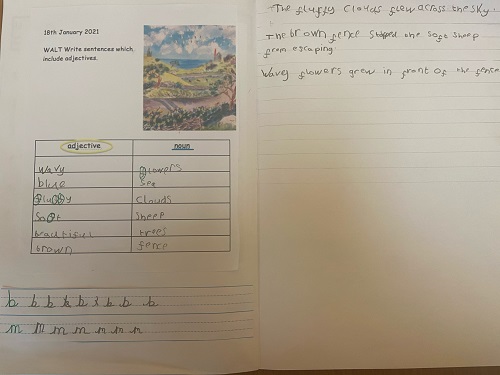 18th January 2021
WALT Write sentences which
include adjectives.
adjective noun
wavy flowers
blue Sea
fluffy clouds
Soft Sheep
beautiful trees
brown fence
b b b b b b b b b
m m m m m m m
The fluffy clouds flew across the sky.
The brown fence stoped the soft sheep
from escaping.
Wavy flowers grew in front of the fence